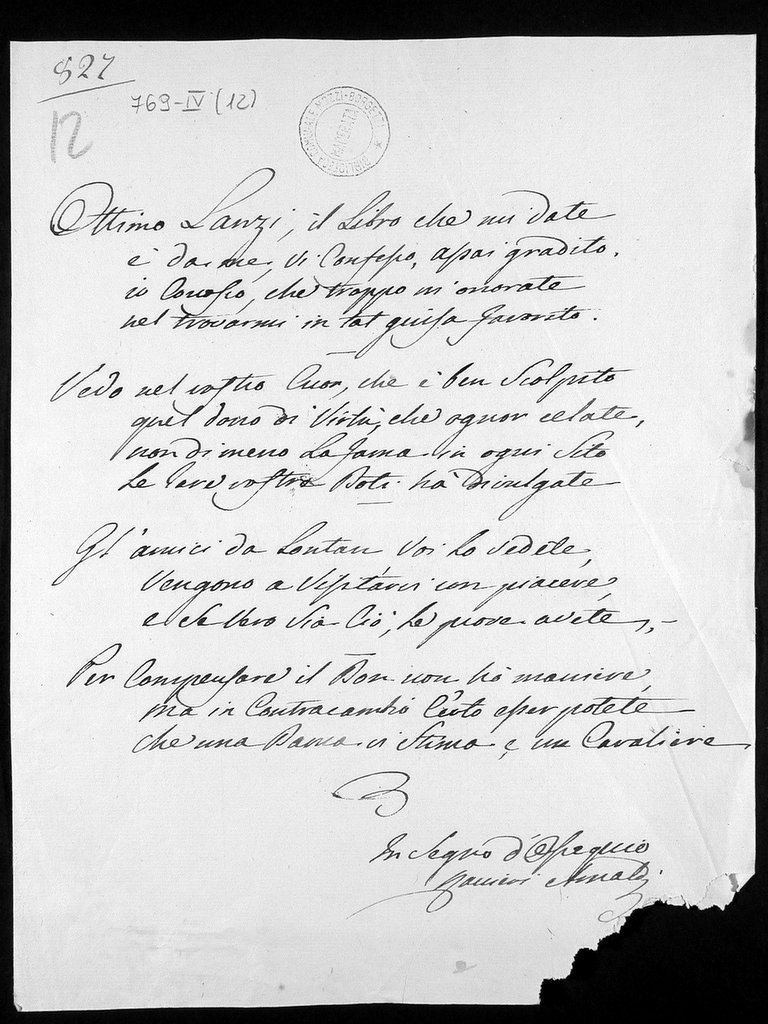 827
12
769-IV (12)
BIBLIOTECA COMUNALE MOZZI-BORGETTI
MACERATA
Ottimo Lanzi, il Libro che mi date
è da me, vi Confesso, assai gradito.
io Conosco, che troppo m'onorate
nel trovarmi in tal guisa favorito.
Vedo nel vostro Cuor, che è ben Scolpito
quel dono di Virtù, che ognor celate,
non di meno La fama in ogni Sito
Le rare vostre Doti ha Divulgate
Gl'amici da Lontan Voi Lo vedete,
Vengono a Visitarvi con piacere,
e Se Vero Sia Ciò, Le prove avete,
Per Compensare il Don non ho maniere,
ma in Contracambio Certo esser potete
che una Dama vi Stima e un Cavaliere
In Segno d'Ossequio
Ranieri